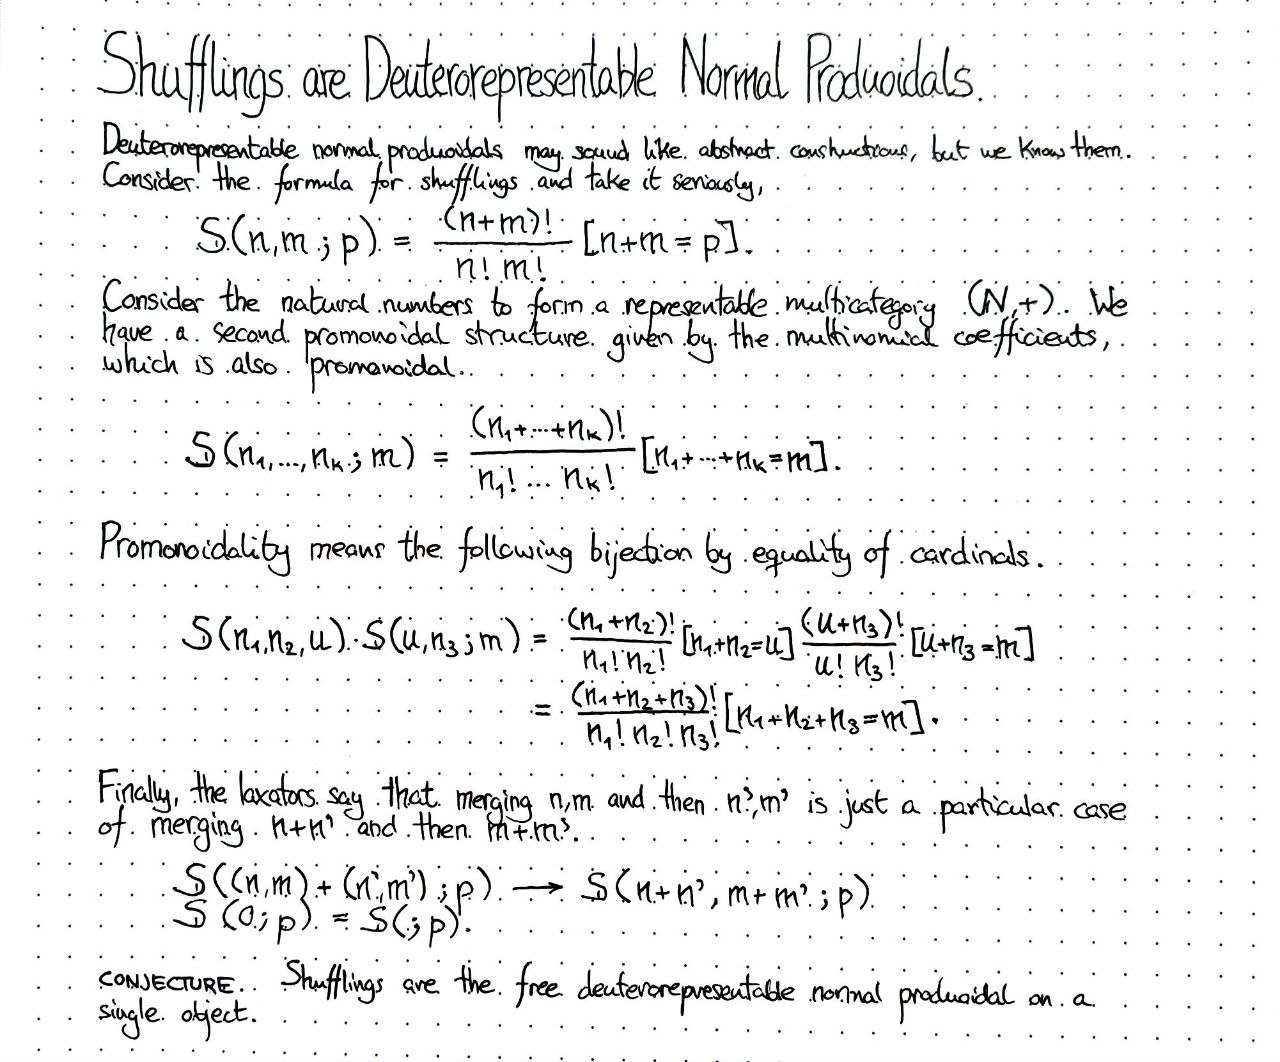 Shufflings are Deuterorepresentable Normal Produoidals.
Deuterorepresentable normal produoidals may sound like abstract constructions, but we know them.
Consider the formula for shufflings and take it seriously,
S(n,m;p) = (n+m)! / n! m! [n+m=p].
Consider the natural numbers to form a representable multicategory (N,+). We
have a second promonoidal structure given by the multinomial coefficients,
which is also promonoidal.
S(n₁,...,nₖ;m) = (n₁+...+nₖ)! / n₁! ... nₖ! [n₁+...+nₖ=m].
Promonoidality means the following bijection by equality of cardinals.
S(n₁,n₂,u)·S(u,n₃;m) = (n₁+n₂)! / n₁! n₂! [n₁+n₂=u] (u+n₃)! / u! n₃! [u+n₃=m]
= (n₁+n₂+n₃)! / n₁! n₂! n₃! [n₁+n₂+n₃=m].
Finally, the laxators say that merging n,m and then n',m' is just a particular case
of merging n+n' and then m+m'.
S((n,m)+(n',m');p) → S(n+n',m+m';p)
S(0;p) = S(;p).
CONJECTURE. Shufflings are the free deuterorepresentable normal produoidal on a
single object.